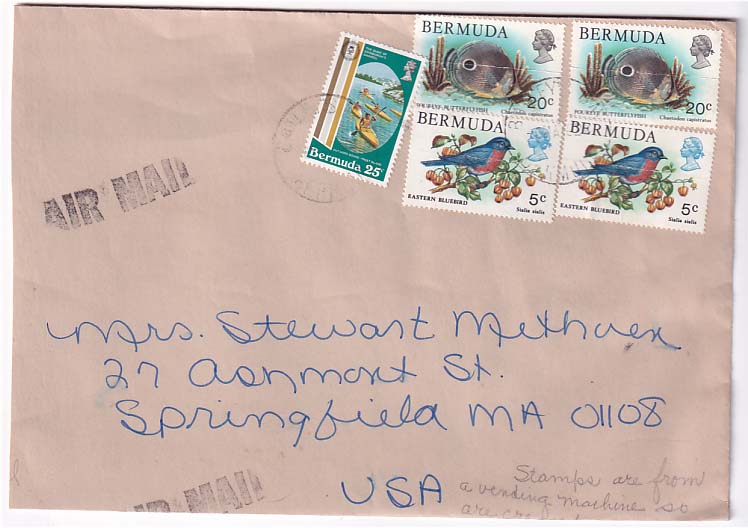 BERMUDA
20c
FOUREYE BUTTERFLYFISH
Chaetodon capistratus
BERMUDA
20c
FOUREYE BUTTERFLYFISH
Chaetodon capistratus
Bermuda 25c
BERMUDA
5c
EASTERN BLUEBIRD
Sialia sialis
BERMUDA
5c
EASTERN BLUEBIRD
Sialia sialis
AIR MAIL
Mrs. Stewart Methven
27 Ashmont St.
Springfield MA 01108
USA
Stamps are from
a vending machine so
are
AIR MAIL